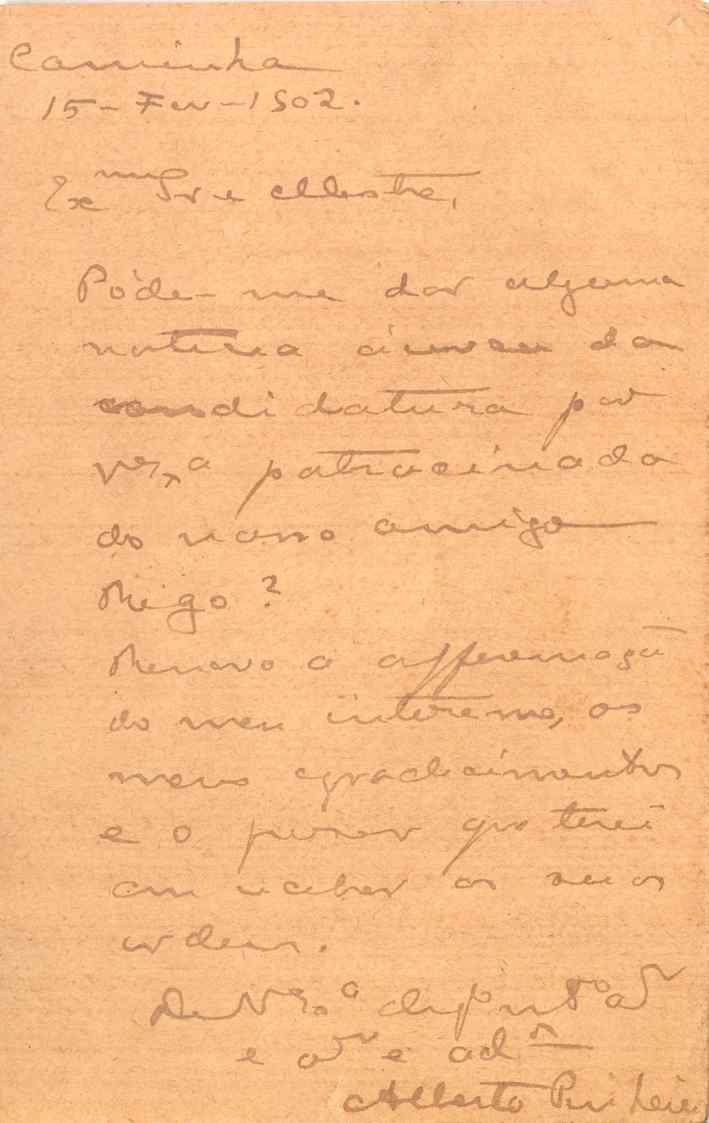 Caminha
15-Fev-1902.
Exmo Sr e Mestre,
Póde-me dar alguma
noticia ácerca da
candidatura por
V Exa patrocinada
do nosso amigo
Rego?
Renovo a affirmação
do meu interesse, os
meus agradecimentos
e o prazer que terei
em receber as suas
ordens.
De V Exa
e adr
Alberto Pinheiro